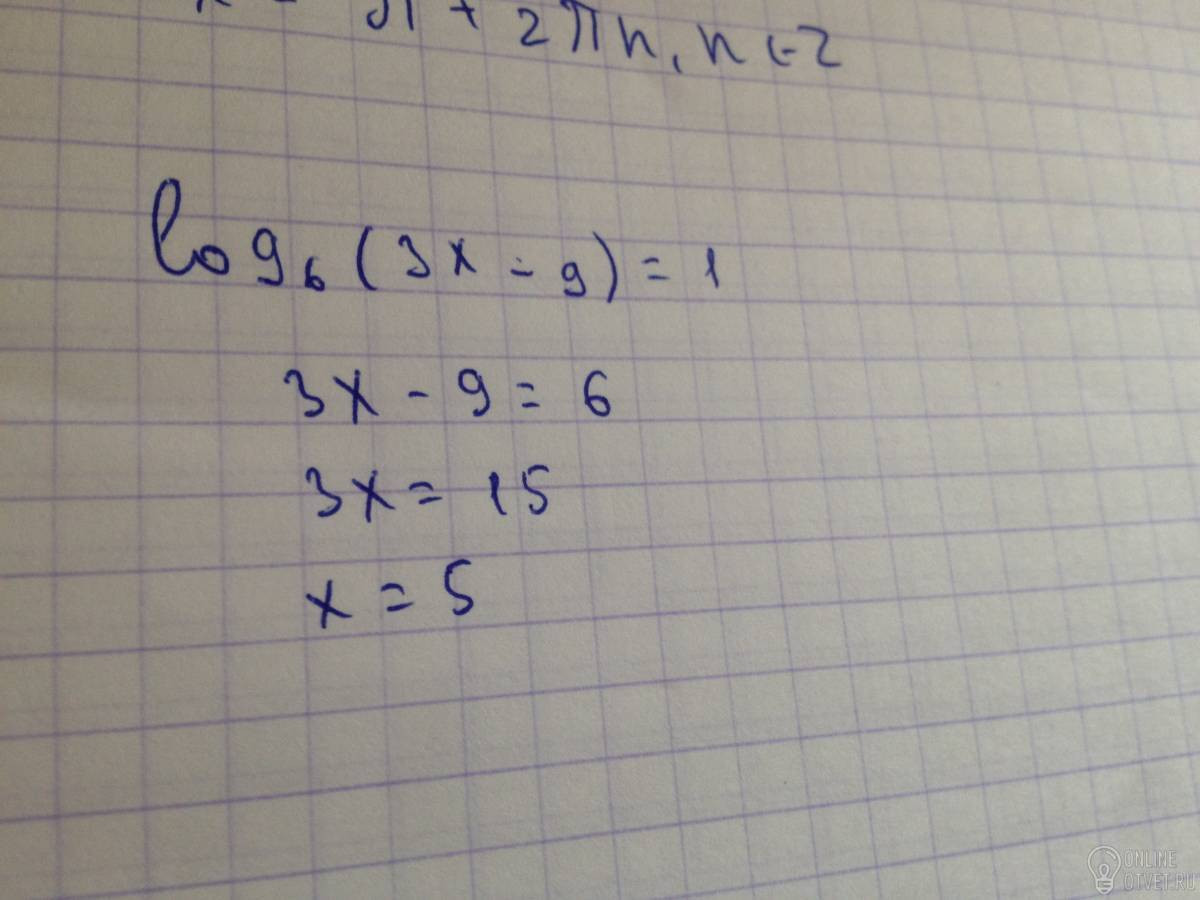 π + 2πn, n ∈ Z
log₆(3x - 9) = 1
3x - 9 = 6
3x = 15
x = 5
ONLINE
OTVET.RU